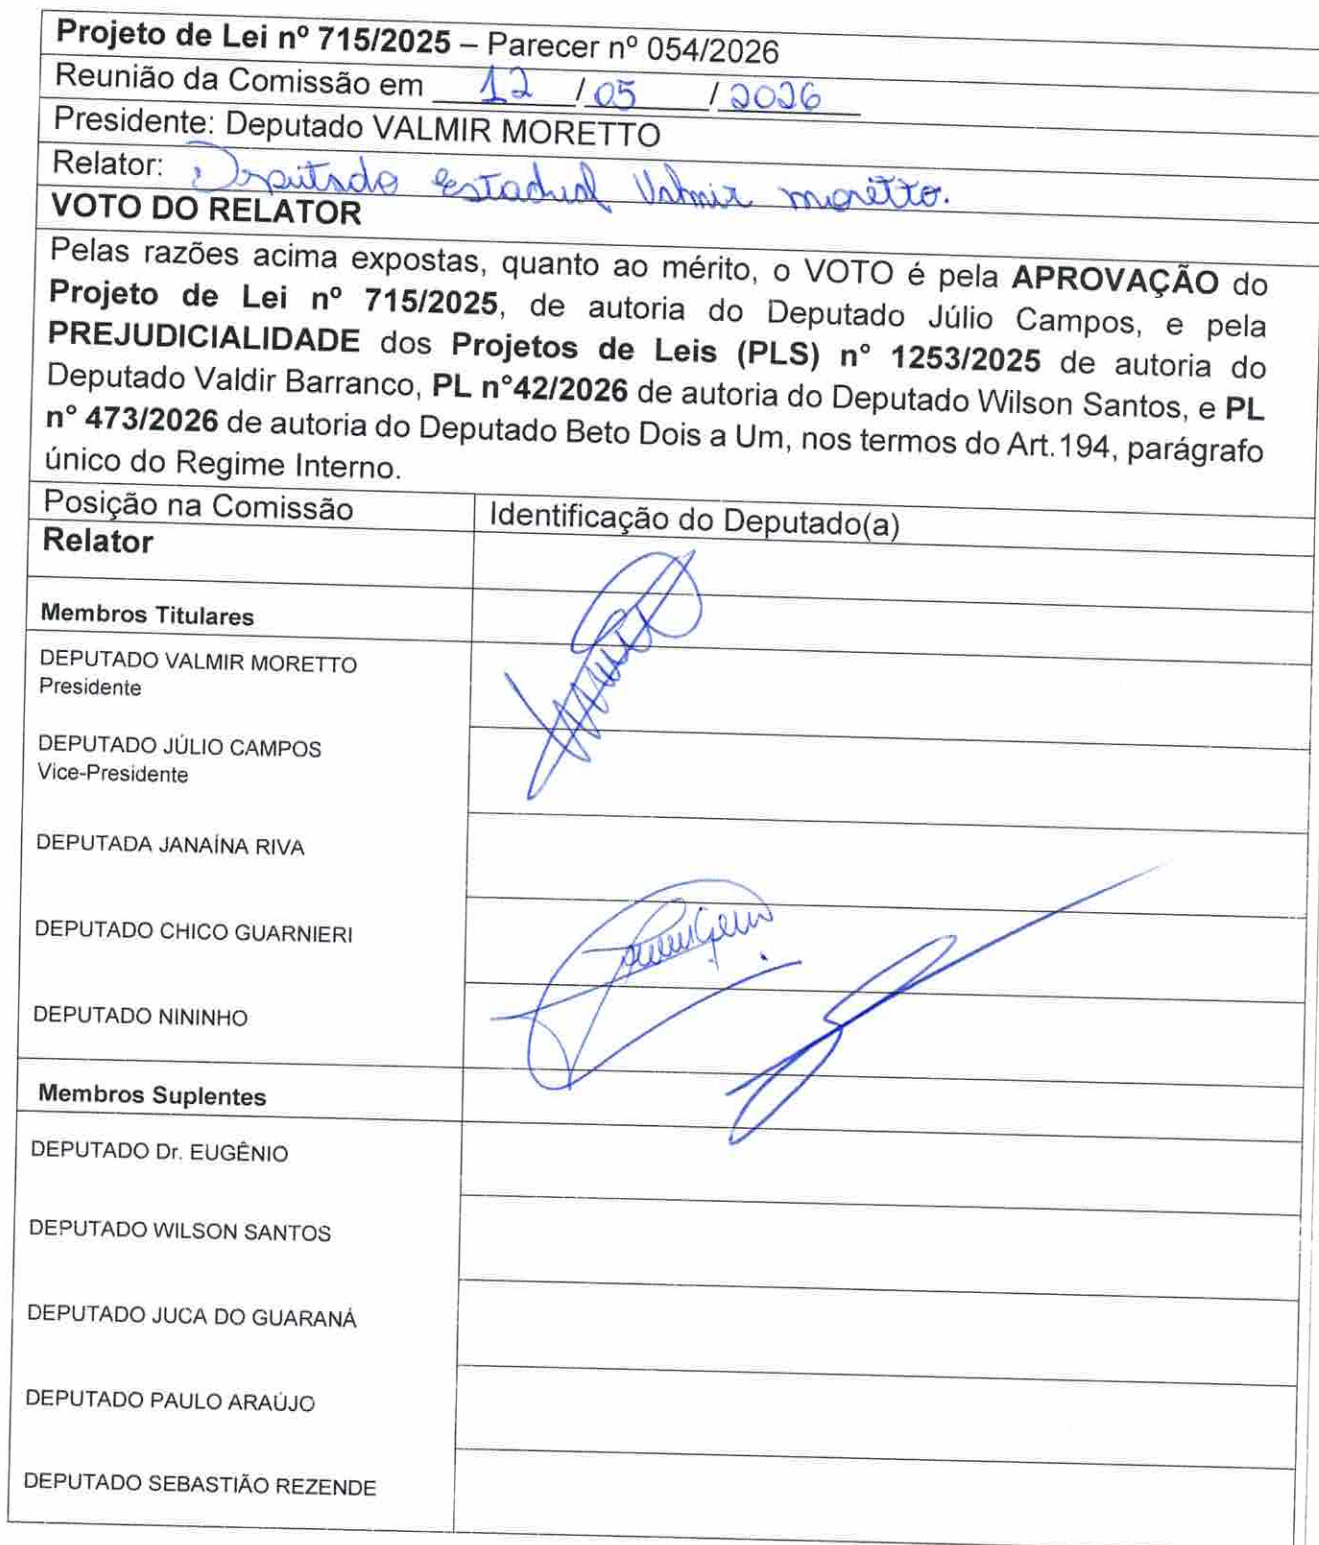 Projeto de Lei nº 715/2025 – Parecer nº 054/2026
Reunião da Comissão em 12 / 05 / 2026
Presidente: Deputado VALMIR MORETTO
Relator: Deputado Estadual Valmir moretto.
VOTO DO RELATOR
Pelas razões acima expostas, quanto ao mérito, o VOTO é pela APROVAÇÃO do
Projeto de Lei nº 715/2025, de autoria do Deputado Júlio Campos, e pela
PREJUDICIALIDADE dos Projetos de Leis (PLS) n° 1253/2025 de autoria do
Deputado Valdir Barranco, PL n°42/2026 de autoria do Deputado Wilson Santos, e PL
n° 473/2026 de autoria do Deputado Beto Dois a Um, nos termos do Art.194, parágrafo
único do Regime Interno.
Posição na Comissão Identificação do Deputado(a)
Relator
Membros Titulares
DEPUTADO VALMIR MORETTO
Presidente
DEPUTADO JÚLIO CAMPOS
Vice-Presidente
DEPUTADA JANAÍNA RIVA
DEPUTADO CHICO GUARNIERI
DEPUTADO NININHO
Membros Suplentes
DEPUTADO Dr. EUGÊNIO
DEPUTADO WILSON SANTOS
DEPUTADO JUCA DO GUARANÁ
DEPUTADO PAULO ARAÚJO
DEPUTADO SEBASTIÃO REZENDE